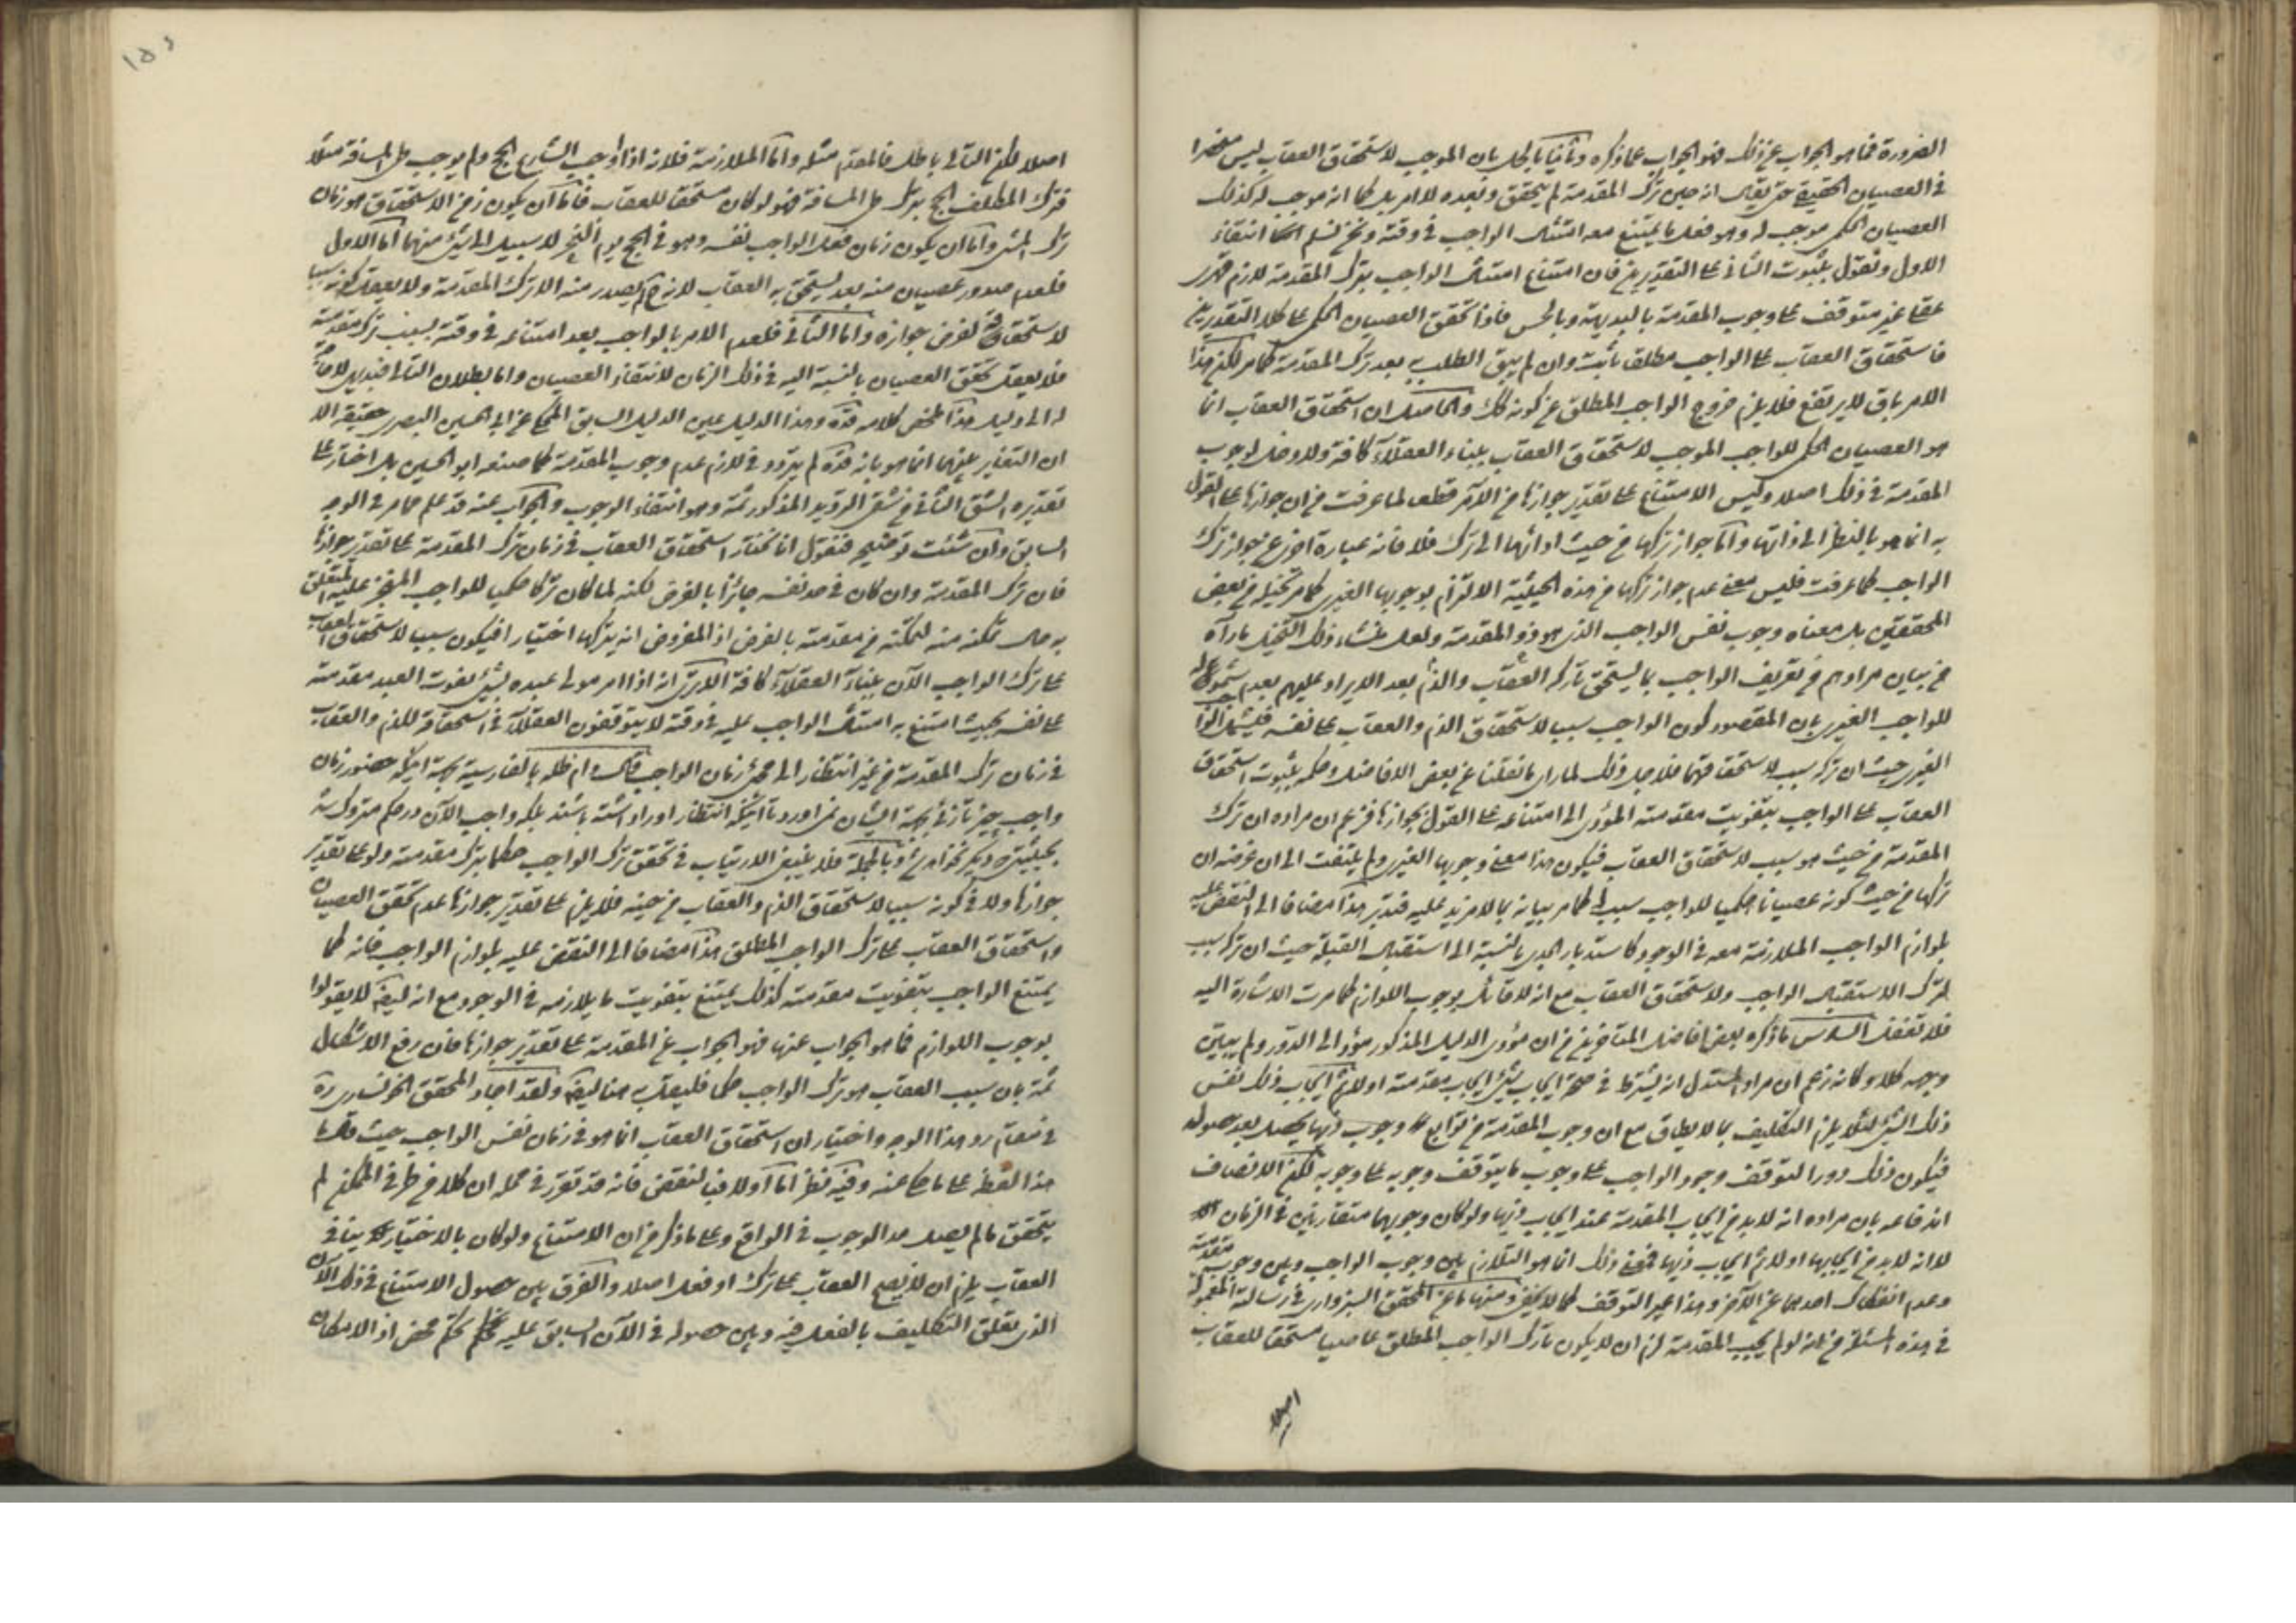 الضرورة فما هو الجواب عن ذلك فهو الجواب عما ذكره وثانيا بالحل بان الموجب لاستحقاق العقاب ليس منحصرا
في العصيان الحقيقي حتى يقال انه حين ترك المقدمة لم يتحقق وبعده لا امر بل كما انه موجب له كذلك
العصيان الحكمي موجب له وهو فعل ما يمتنع معه امتثال الواجب في وقته ونحن نسلم انتفاء
الاول ونقول بثبوت الثاني على التقديرين فان امتناع امتثال الواجب بترك المقدمة لازم قهري
عقلي غير متوقف على وجوب المقدمة بالبديهة وبالحس فاذا تحقق العصيان الحكمي على كلا التقديرين
فاستحقاق العقاب على الواجب مطلقا ثابت وان لم يبق الطلب به بعد ترك المقدمة كما مر لكن هذا
الامر باق لا يرتفع فلا يلزم خروج الواجب المطلق عن كونه كذلك والحاصل ان استحقاق العقاب انما
هو العصيان الحكمي للواجب الموجب لاستحقاق العقاب ببناء العقلاء كافة ولا دخل لوجوب
المقدمة في ذلك اصلا وليس الامتناع على تقدير جوازها من الآمر قطعا لما عرفت من ان جوازها على القول
به انما هو بالنظر الى ذاتها واما جواز تركها من حيث ادائها الى ترك فلا فانه عبارة اخرى عن جواز ترك
الواجب كما عرفت فليس معنى عدم جواز تركها من هذه الحيثية الالتزام بوجوبها الغيري كما مر تخيله من بعض
المحققين بل معناه وجوب نفس الواجب الذي هو ذو المقدمة ولعل منشاء ذلك التخيل ما رآه
من بيان مرادهم في تعريف الواجب بما يستحق تاركه العقاب والذم بعد الايراد عليهم بعدم شموله
للواجب الغيري بان المقصود كون الواجب سببا لاستحقاق الذم والعقاب على نفسه فيشمل الواجب
الغيري حيث ان تركه سبب لاستحقاقهما فلاجل ذلك لما راى ما نقلنا عن بعض الافاضل وحكمه بثبوت استحقاق
العقاب على الواجب بتفويت مقدمته المؤدي الى امتناعه على القول بجوازها فزعم ان مراده ان ترك
المقدمة من حيث هو سبب لاستحقاق العقاب فيكون هذا معنى وجوبها الغيري ولم يلتفت الى ان غرضه ان
تركها من حيث كونه عصيانا حكميا للواجب سبب له كما مر بيانه بما لا مزيد عليه فتدبر هذا مضافا الى النقض عليه
بلوازم الواجب الملازمة معه في الوجود كاستدبار الجدي بالنسبة الى استقبال القبلة حيث ان تركه سبب
لترك الاستقبال الواجب ولاستحقاق العقاب مع انه لا قائل بوجوب اللوازم كما مرت الاشارة اليه
فلا تغفل السادس ما ذكره بعض افاضل المتاخرين من ان مؤدى الدليل المذكور مؤد الى الدور ولم يبين
وجهه كلا وكانه زعم ان مراد المستدل انه يشترط في صحة ايجاب شيء ايجاب مقدمته اولا ثم ايجاب ذلك نفس
ذلك الشيء لئلا يلزم التكليف بما لا يطاق مع ان وجوب المقدمة من توابع وجوب ذيها يحصل بعد حصوله
فيكون ذلك دورا لتوقف وجود الواجب على وجوب ما يتوقف وجوبه على وجوبه لكن الانصاف
اندفاعه بان مراده انه لا بد من ايجاب المقدمة عند ايجاب ذيها ولو كان وجوبهما متقارنين في الزمان
لا انه لا بد من ايجابها اولا ثم ايجاب ذيها فمعنى ذلك انما هو التلازم بين وجوب الواجب وبين وجوب مقدمته
وعدم انفكاك احدهما عن الآخر وهذا غير التوقف كما لا يخفى ومنها ما عن المحقق السبزواري في رسالته المعمولة
في هذه المسئلة من انه لو لم يجب المقدمة لزم ان لا يكون تارك الواجب المطلق عاصيا مستحقا للعقاب
اصلا
اصلا لكن التالي باطل فالمقدم مثله واما الملازمة فلانه اذا اوجب الشارع الحج ولم يوجب طى المسافة مثلا
فترك المكلف الحج بترك طى المسافة فهو لو كان مستحقا للعقاب فاما ان يكون زمن الاستحقاق هو زمان
ترك المشى واما ان يكون زمان فعل الواجب نفسه وهو في الحج يوم النحر لا سبيل الى شيء منهما اما الاول
فلعدم صدور عصيان منه بعد يستحق به العقاب لانه ح لم يصدر منه الا ترك المقدمة ولا يعقل كونه سببا
لاستحقاقه لفرض جوازه واما الثاني فلعدم الامر بالواجب بعد امتناعه في وقته بسبب ترك مقدمته
فلا يعقل تحقق العصيان بالنسبة اليه في ذلك الزمان لانتفاء العصيان واما بطلان التالي فبديهي لا حاجة
له الى دليل هذا ملخص كلامه قده وهذا الدليل عين الدليل السابق المحكى عن ابي الحسين البصري حقيقة الا
ان التغاير بينهما انما هو بانه قده لم يردد في لازم عدم وجوب المقدمة كما صنعه ابو الحسين بل اختار على
تقديره الشق الثاني من شقى الترديد المذكور ثمة وهو انتفاء الوجوب والجواب عنه قد علم مما مر في الوجه
السابق وان شئت توضيحه فنقول انا نختار استحقاق العقاب في زمان ترك المقدمة على تقدير جوازها
فان ترك المقدمة وان كان في حد نفسه جائزا بالفرض لكنه لما كان تركا حكميا للواجب المنجز عليه المتعلق
به حال تمكنه منه لتمكنه من مقدمته بالفرض اذ المفروض انه يتركها اختيارا فيكون سببا لاستحقاق العقاب
على ترك الواجب الآن ببناء العقلاء كافة الا ترى انه اذا امر مولى عبده بشيء ففوت العبد مقدمته
على نفسه بحيث امتنع به امتثال الواجب عليه في وقته لا يتوقفون العقلاء في استحقاقه للذم والعقاب
في زمان ترك المقدمة من غير انتظار الى مجيء زمان الواجب قال دام ظله بالفارسية بجهة اينكه حضور زمان
واجب چيز تازه بجهة ايشان نمى اورد تا اينكه انتظار او را داشته باشند بلكه واجب الآن در حكم متروك شد
بحيثيتى كه ديگر نخواهد شد وبالجملة فلا ينبغي الارتياب في تحقق ترك الواجب حكما بترك مقدمته ولو على تقدير
جوازها ولا في كونه سببا لاستحقاق الذم والعقاب من حينه فلا يلزم على تقدير جوازها عدم تحقق العصيان
واستحقاق العقاب على ترك الواجب المطلق هذا مضافا الى النقض عليه بلوازم الواجب فانه كما
يمتنع الواجب بتفويت مقدمته كذلك يمتنع بتفويت ما يلازمه في الوجود مع انه ايضا لا يقولوا
بوجوب اللوازم فما هو الجواب عنها فهو الجواب عن المقدمة على تقدير جوازها فان رفع الاشكال
ثمة بان سبب العقاب هو ترك الواجب حكما فليعقل به هنا ايضا ولقد اجاد المحقق الخونساري ره
في مقام رد هذا الوجه واختيار ان استحقاق العقاب انما هو في زمان نفس الواجب حيث قال ما
هذا لفظه على ما حكى عنه وفيه نظر اما اولا فبالنقض فانه قد تقرر في محله ان كلا من طرفى الممكن لم
يتحقق ما لم يصل حد الوجوب في الواقع وعلى ما ذكر من ان الامتناع ولو كان بالاختيار ينافي
العقاب يلزم ان لا يصح العقاب على ترك او فعل اصلا والفرق بين حصول الامتناع في ذلك الآن
الذي تعلق التكليف بالفعل فيه وبين حصوله في الآن السابق عليه تحكم محض اذ الامكان